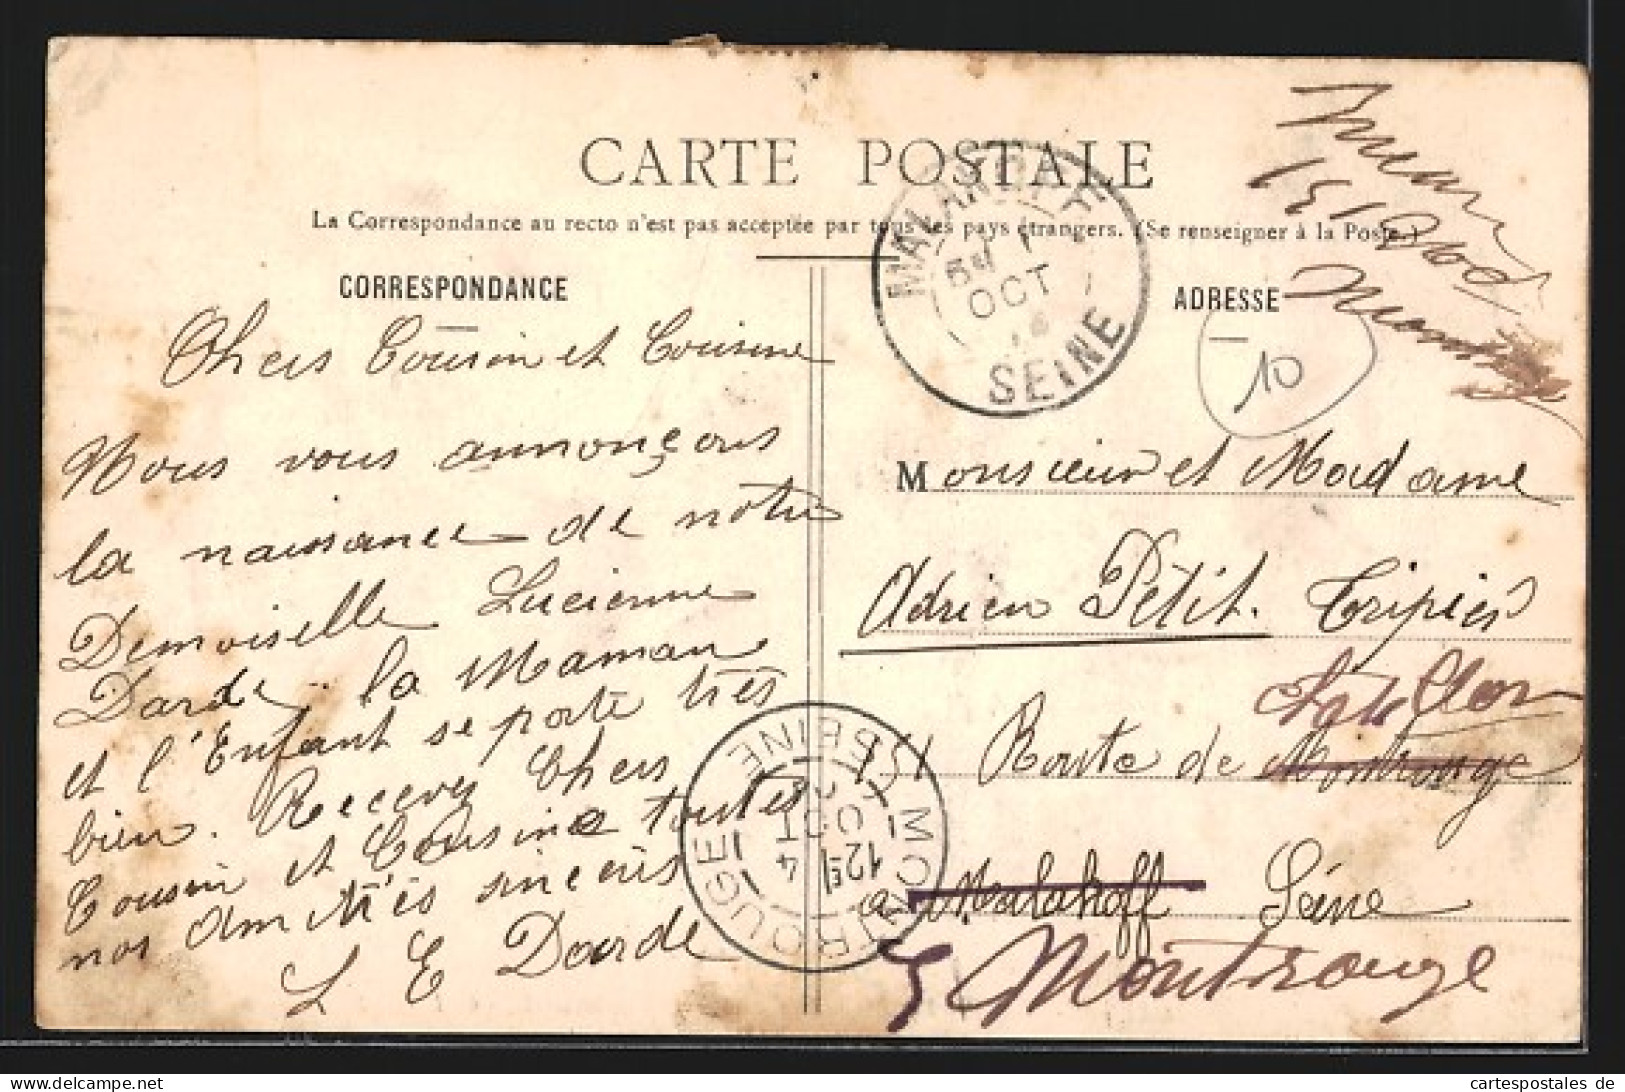 CARTE POSTALE
La Correspondance au recto n'est pas acceptée par tous les pays étrangers. (Se renseigner à la Poste.)
CORRESPONDANCE
Chers Cousin et Cousine
Nous vous annonçons
la naissance de notre
Demoiselle Lucienne
Darde la Maman
et l'Enfant se porte très
bien. Recevez Chers
Cousin et Cousine toutes
nos amitiés sincères
L E Darde
MALAKOFF
OCT
SEINE
ADRESSE
10
151
Monsieur et Madame
Adrien Petit. Tripiers
151 Route de Montrouge
Chatillon
a Malakoff Seine
Montrouge
MONTROUGE
12
OCT
SEINE
cartespostales de